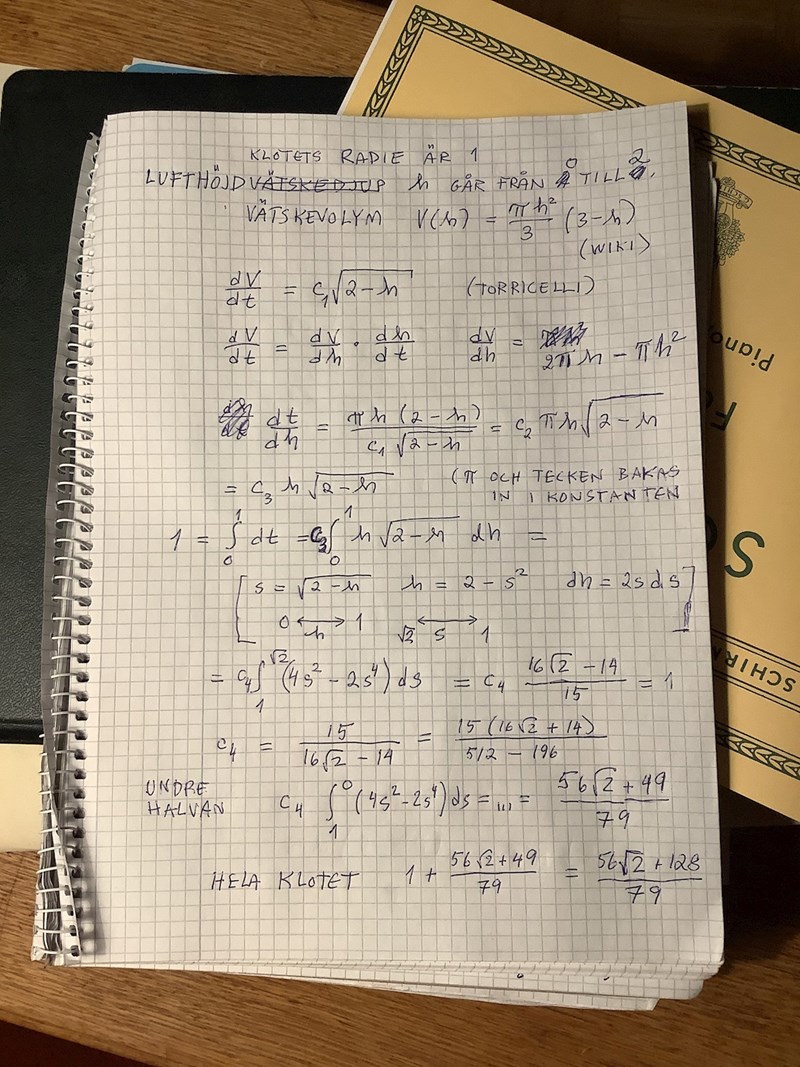 KLOTETS RADIE ÄR 1
LUFTHÖJD VÄTSKEDJUP h GÅR FRÅN 0 TILL 2.
VÄTSKEVOLYM V(h) = πh²/3 (3-h)
(WIKI)
dV/dt = c₁√(2-h) (TORRICELLI)
dV/dt = dV/dh · dh/dt dV/dh = 2πh - πh²
dt/dh = πh(2-h)/(c₁√(2-h)) = c₂πh√(2-h)
= c₃ h√(2-h) (π OCH TECKEN BAKAS
IN I KONSTANTEN
1 = ∫₀¹ dt = c₃∫₀¹ h√(2-h) dh =
[s = √(2-h) h = 2-s² dh = 2s ds
0 ↔ 1 √2 ↔ 1]
h s
= c₄∫₁^√2 (4s² - 2s⁴) ds = c₄ (16√2 - 14)/15 = 1
c₄ = 15/(16√2 - 14) = 15(16√2 + 14)/(512 - 196)
UNDRE
HALVAN c₄ ∫₁⁰ (4s² - 2s⁴) ds = ... = (56√2 + 49)/79
HELA KLOTET 1 + (56√2 + 49)/79 = (56√2 + 128)/79
Piano
SCHIRM